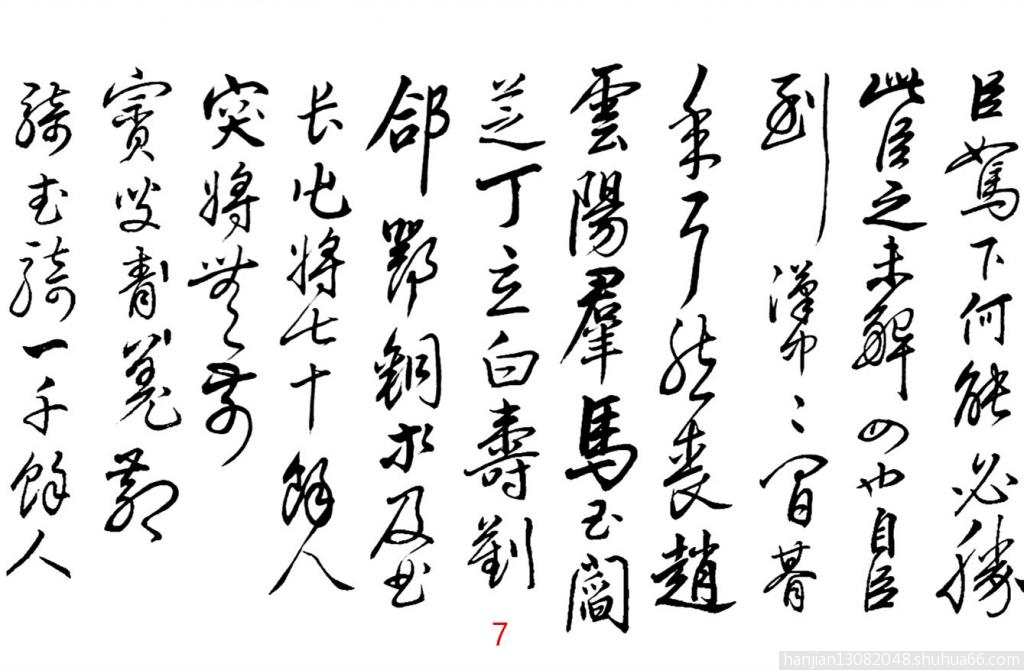 臣駑下何能必勝
此臣之未解四也自臣
到漢中々間朞
年耳然喪趙
雲陽羣馬玉閻
芝丁立白壽劉
郃鄧銅等及曲
长屯將七十餘人
突將無前
賨叟青羌散
騎武騎一千餘人
7
hanjian13082048.shuhua66.com